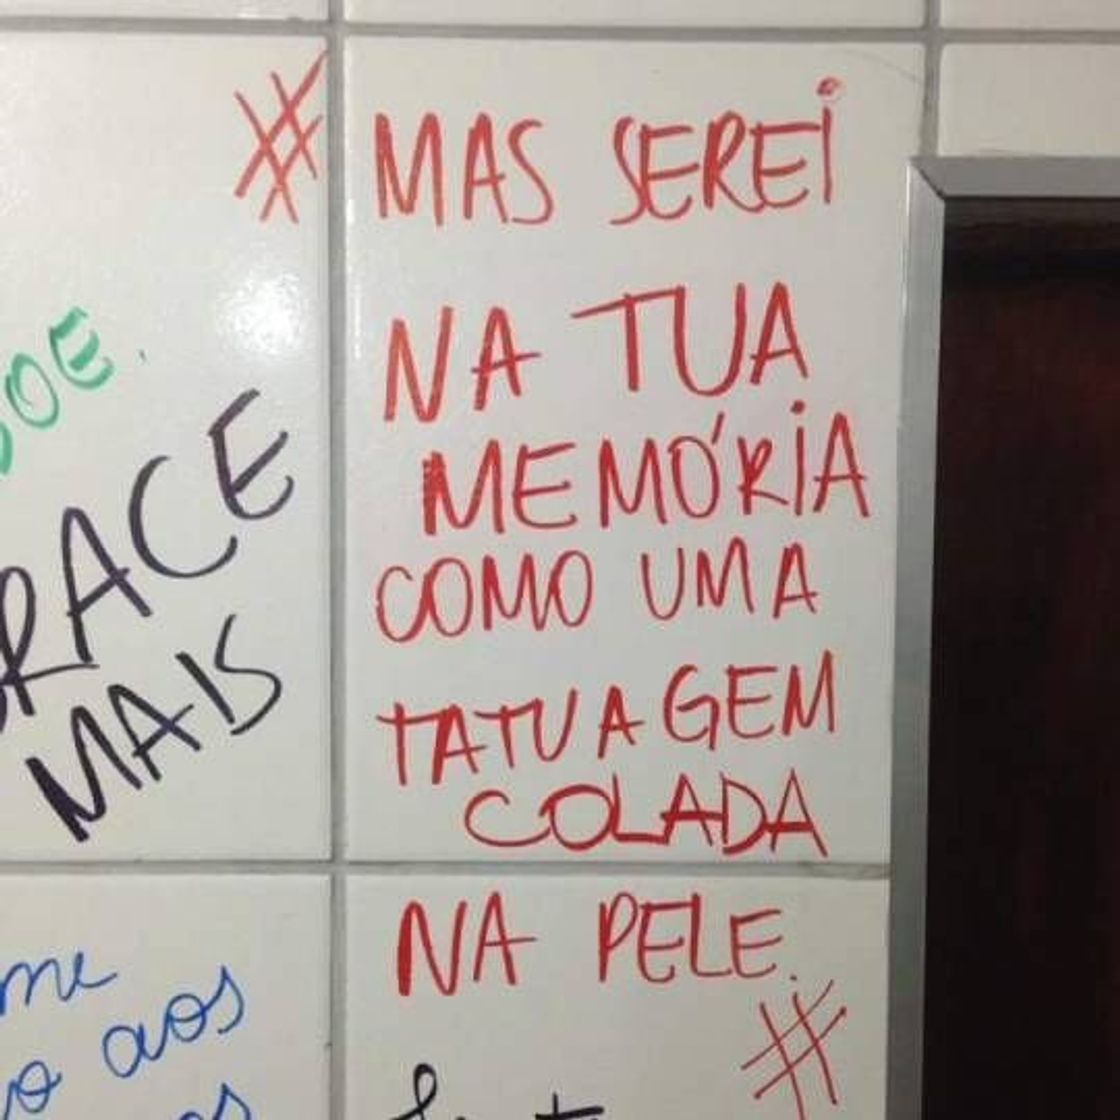 # MAS SEREI
NA TUA
MEMÓRIA
COMO UMA
TATUAGEM
COLADA
NA PELE.
#
MAIS
aos